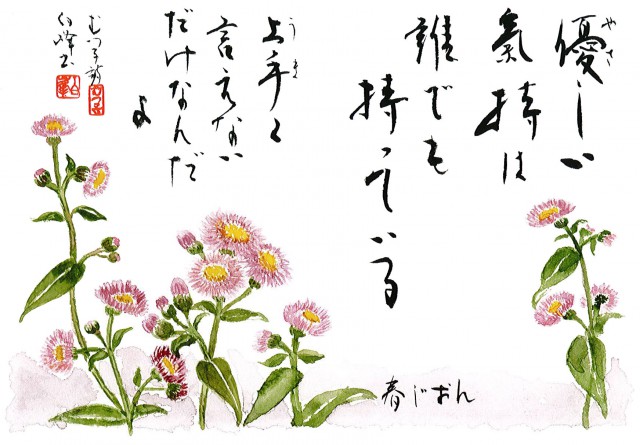 やさ
優しい
氣持は
誰でも
持っている
うま
上手く
言えない
だけなんだ
よ
むつ子
春じおん